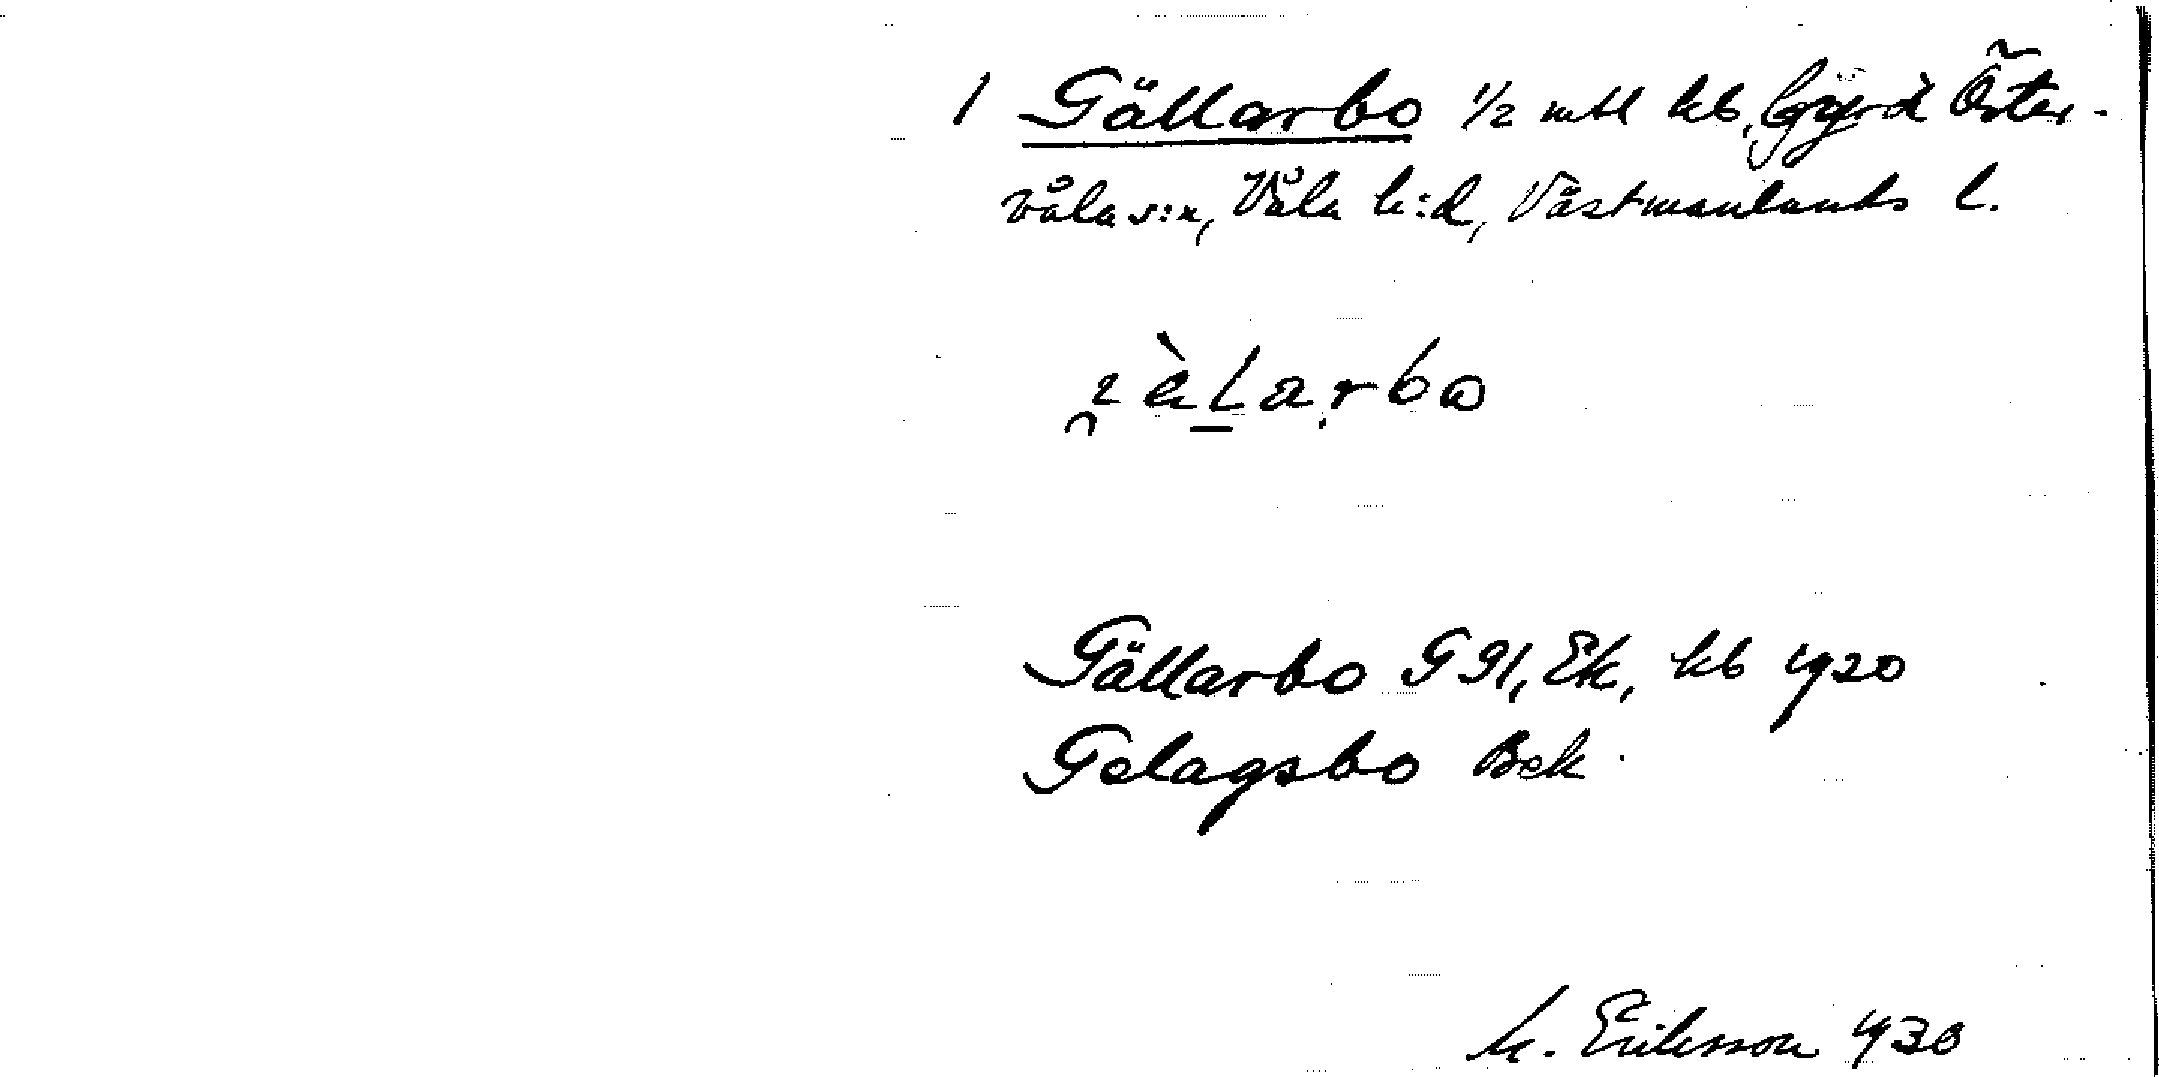 1 Gällarbo ½ mtl kb, Öster-
våla s:n, Våla h:d, Västmanlands l.
Gällarbo GSA, Ek, kb 1920
Gelagsbo Bek
M. Eriksson 1930